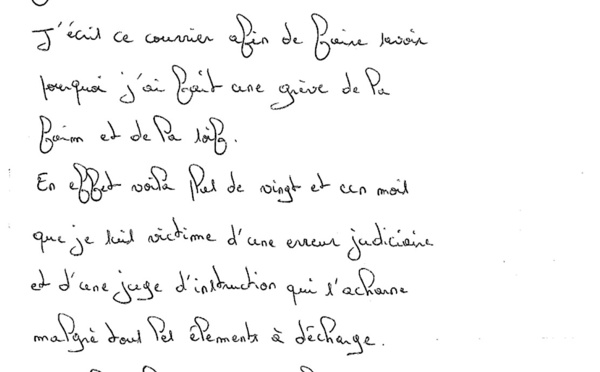 J'écris ce courrier afin de faire savoir
pourquoi j'ai fait une grève de la
faim et de la soif.
En effet voilà plus de vingt et un mois
que je suis victime d'une erreur judiciaire
et d'une juge d'instruction qui s'acharne
malgré tous les élements à décharge.